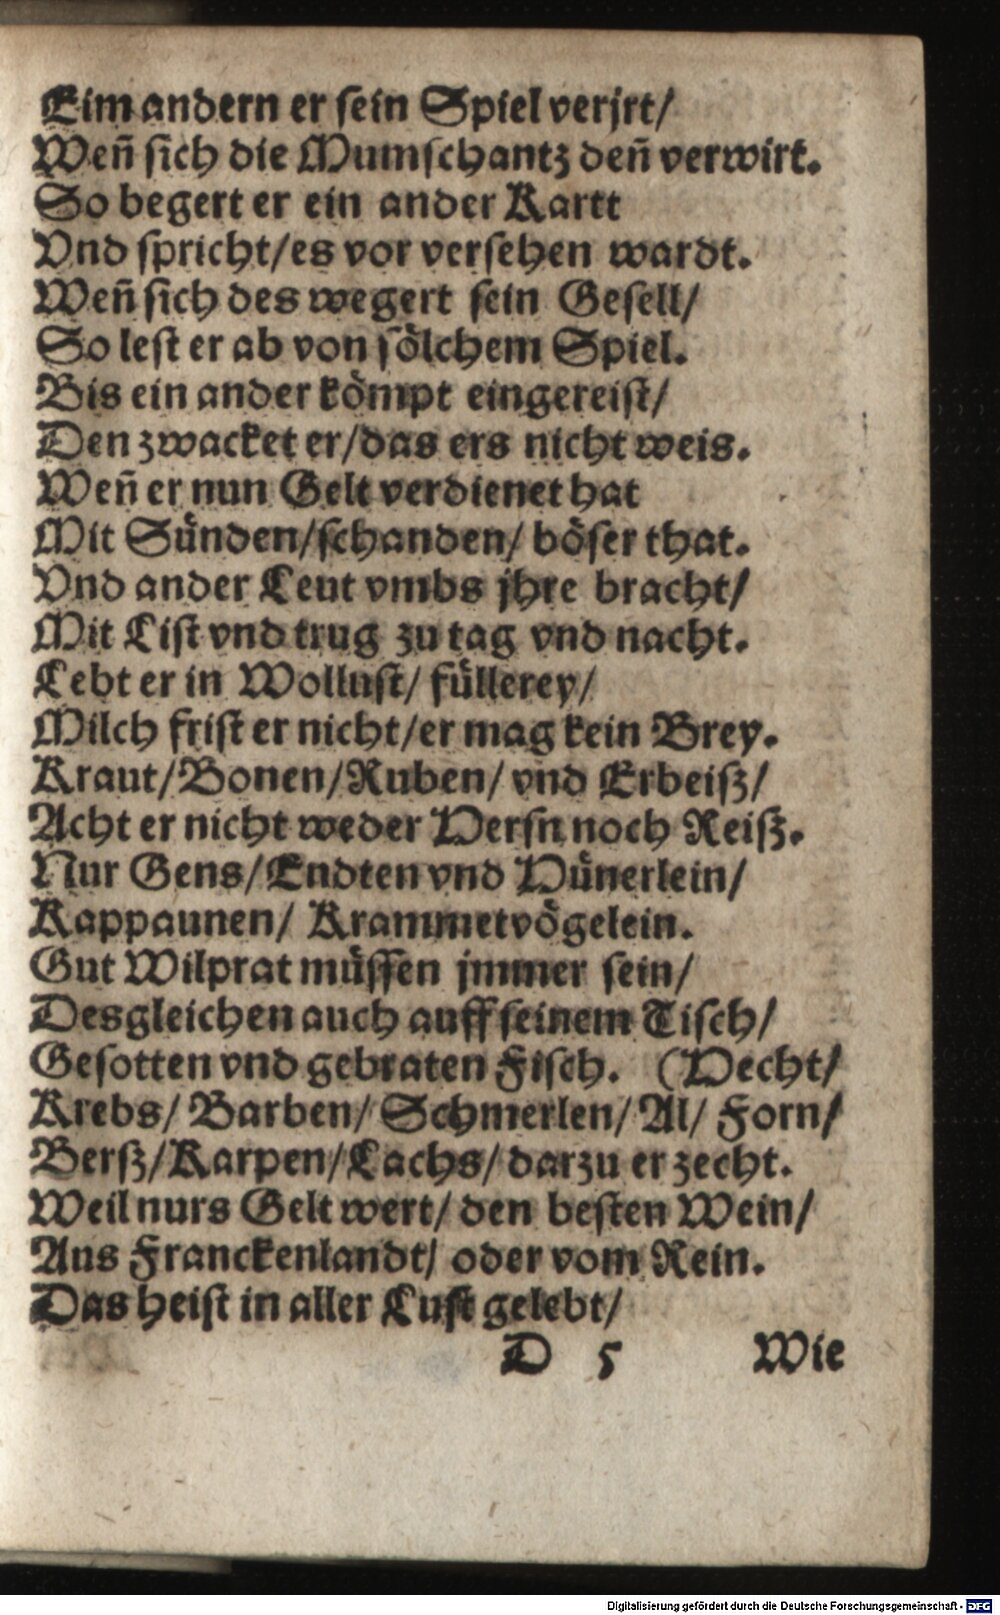 Eim andern er sein Spiel verjrt/
Weñ sich die Mumschantz deñ verwirt.
So begert er ein ander Kartt
Vnd spricht/es vor versehen wardt.
Weñ sich des wegert sein Gesell/
So lest er ab von sölchem Spiel.
Bis ein ander kömpt eingereist/
Den zwacket er/das ers nicht weis.
Weñ er nun Gelt verdienet hat
Mit Sünden/schanden/ böser that.
Vnd ander Leut vmbs jhre bracht/
Mit List vnd trug zu tag vnd nacht.
Lebt er in Wollust/ füllerey/
Milch frist er nicht/er mag kein Brey.
Kraut/Bonen/Ruben/ vnd Erbeiß/
Acht er nicht weder Hersn noch Reiß.
Nur Gens/Endten vnd Hünerlein/
Kappaunen/ Krammetvögelein.
Gut Wilprat müssen jmmer sein/
Desgleichen auch auff seinem Tisch/
Gesotten vnd gebraten Fisch. (Hecht/
Krebs/ Barben/ Schmerlen/ Al/ Forn/
Berß/Karpen/Lachs/ darzu er zecht.
Weil nurs Gelt wert/ den besten Wein/
Aus Franckenlandt/ oder vom Rein.
Das heist in aller Lust gelebt/
D 5 Wie
Digitalisierung gefördert durch die Deutsche Forschungsgemeinschaft - DFG